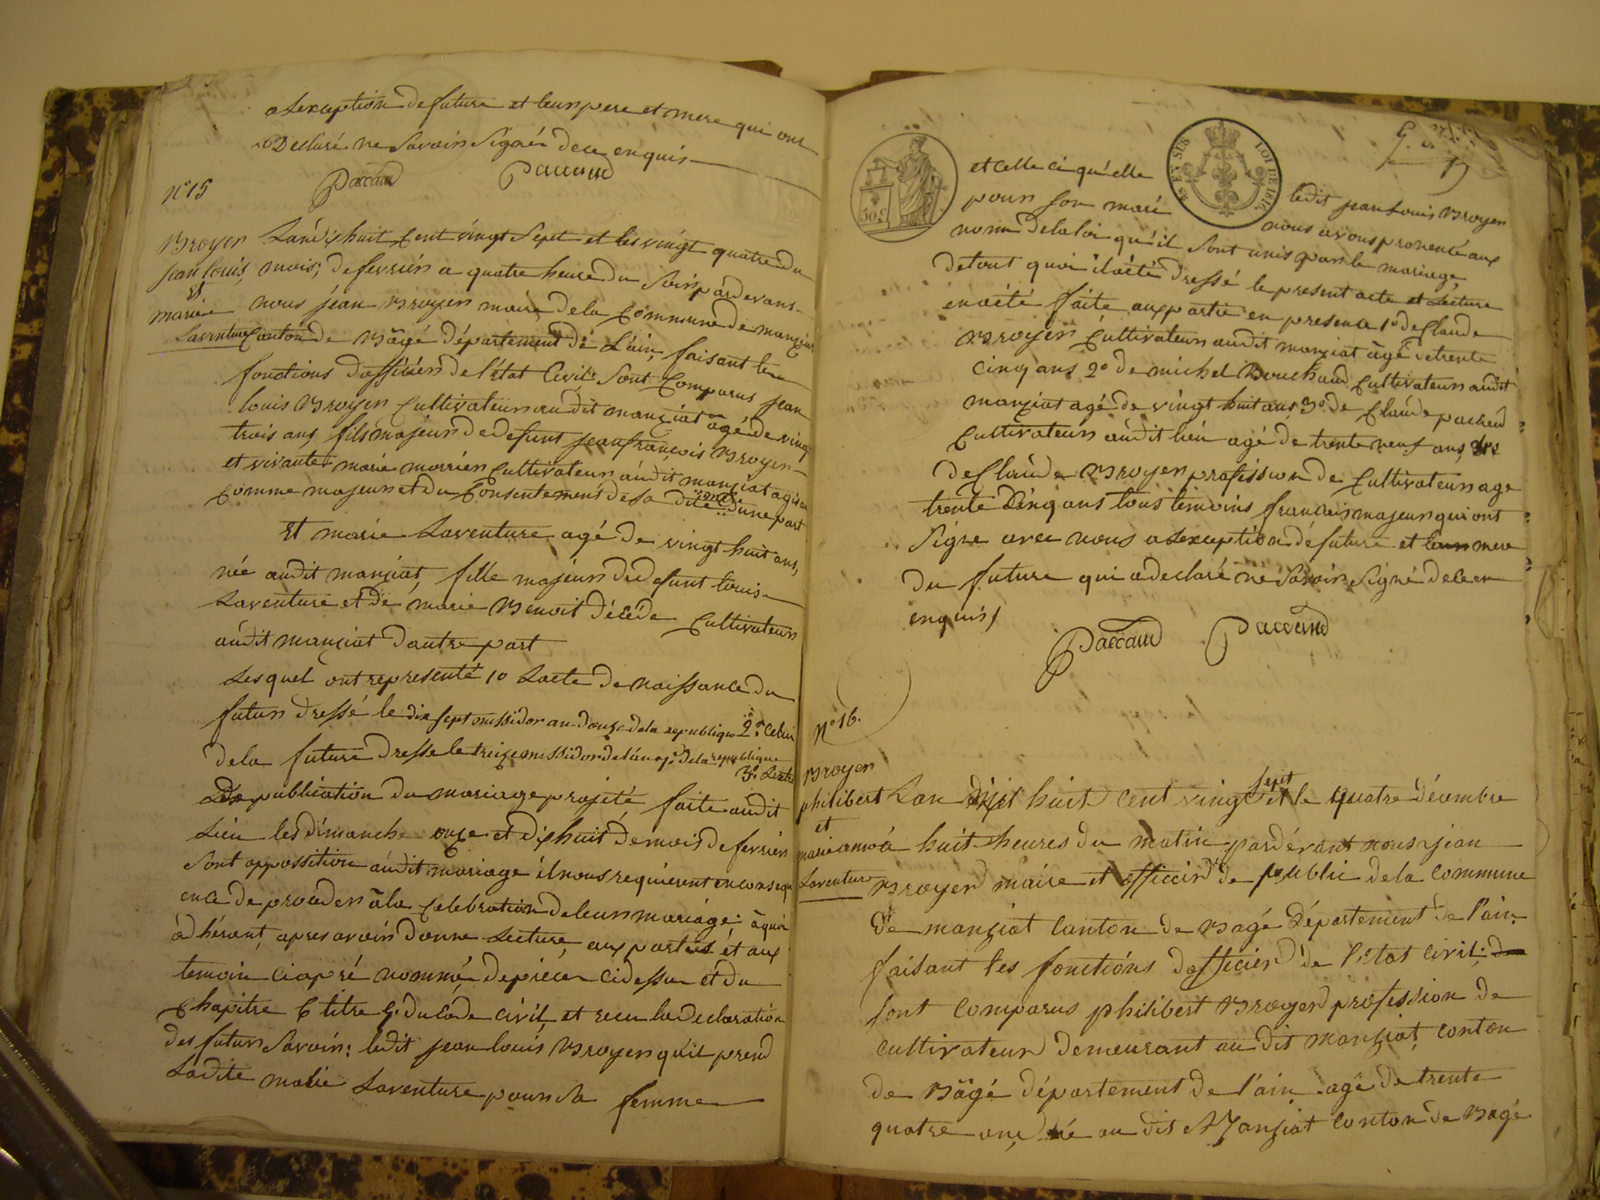 alexception de future et leurs pere et mere qui ont
Declaré ne Savoir Signér dece enquis
Paccaud Paccaud
n° 15
Broyer
jean louis
et
marie
Laventure
L'an dix huit Cent vingt Sept et les vingt quatre du
mois de fevrier a quatre heure du Soir pardevans
nous jean Broyer maire de la Commune de manziat
Canton de Bâgé département de L'ain faisant les
fonctions d'officier de l'état Civil Sont Comparus jean
louis Broyer Cultivateur audit manziat agé de vingt
trois ans fils majeur de defunt jean françois Broyer
et vivante marie morrier Cultivateur audit manziat agis
Comme majeur et du Consentement de Sa dite mere d'une part
Et marie Laventure agé de vingt huit ans,
née audit manziat, fille majeur du defunt louis
Laventure et de marie Benoit décéde Cultivateur
audit manziat d'autre part
Lesquel ont representé 1o Lacte de naissance du
futur dressé le dix sept messidor an douze de la republique 2° Celui
de la future dresse le treize messidor de l'an 7e de la republique
3° Lacte
de publication du mariage projeté faite audit
Lieu les dimanche onze et dix huit de mois de fevrier
Sont oppossition audit mariage il nous requierent en consequ
ence de proceder a la Celebration de leur mariage; à quoi
adhérant, apres avoir donne Lecture, aux parties et aux
temoin ciapré nommé, de piéces cidessu et du
Chapitre 6 titre 5e du Code civil et recu la declaration
des futur Savoir: ledit jean louis Broyer quil prend
Ladite marie Laventure pour Sa femme
et celle ci qu'elle
pour son mari
ledit jean louis Broyer
nous avons prononcé aux
nom de la loi qu'il Sont unis par le mariage,
de tout quoi il a été dressé le present acte et Lecture
en a été faite aux partie en presence 1° de Claude
Broyer Cultivateur audit manziat agé de trente
Cinq ans 2° de michel Bouchard Cultivateur audit
manziat agé de vingt huit ans 3° de Claude pacaud
Cultivateur audit lieu agé de trente neuf ans
de Claude Broyer profission de Cultivateur age
trente Cinq ans tous temoins francais majeur qui ont
Signe avec nous a Lexception de future et leur mere
du future qui a declaré ne Savoir Signé de ce en
enquis
Paccaud Paccaud
n° 16.
Broyer
philibert
et
marie anne
Laventure
Lan dixt huit cent vingt Sept et le quatre décembre
à huit heures du matin pardévant nous jean
Broyer maire et officier de public de la commune
de manziat canton de Bagé département de l'ain
faisant les fonctions dofficier de l'état civil
sont comparus philibert Broyer profession de
cultivateur demeurant au dit manziat canton
de Bâgé département de l'ain agé de trente
quatre ans né au dit Manziat conton de Bagé